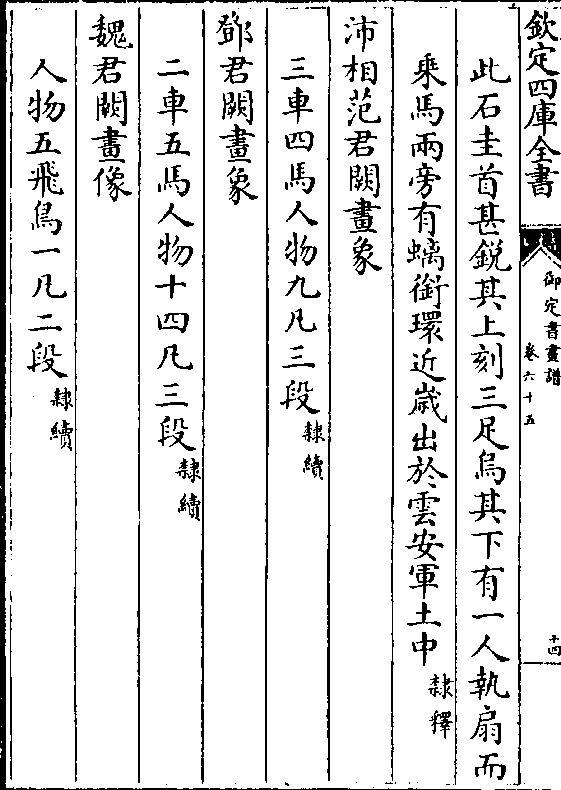 欽定四庫全書
御定書畫譜
卷六十五
十四
此石圭首甚銳其上刻三足烏其下有一人執扇而
乘馬兩旁有螭銜環近歲出於雲安軍土中隸釋
沛相范君闕畫象
三車四馬人物九凡三段隸續
鄧君闕畫象
二車五馬人物十四凡三段隸續
魏君闕畫像
人物五飛鳥一凡二段隸續